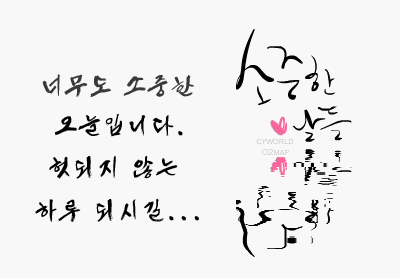 너무도 소중한
오늘입니다.
헛되지 않는
하루 되시길...
소중한
날들
CYWORLD
O2MAP